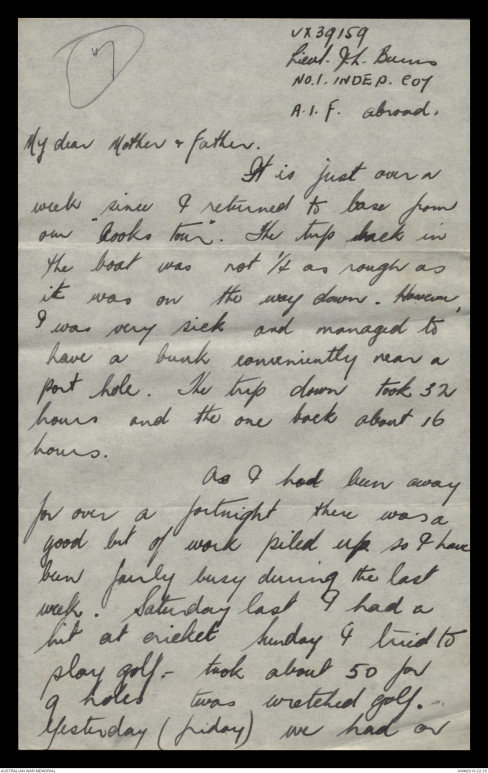 VX39159
Lieut. J.L. Burns
NO.1. INDEP. COY
A.I.F. abroad.
My dear Mother & Father.
It is just over a
week since I returned to base from
our "Cooks tour". The trip back in
the boat was not 1/4 as rough as
it was on the way down. However,
I was very sick and managed to
have a bunk conveniently near a
port hole. The trip down took 32
hours and the one back about 16
hours.
As I had been away
for over a fortnight there was a
good bit of work piled up so I have
been fairly busy during the last
week. Saturday last I had a
hit at cricket Sunday I tried to
play golf.- took about 50 for
9 holes twas wretched golf.-
Yesterday (friday) we had an
AUSTRALIAN WAR MEMORIAL